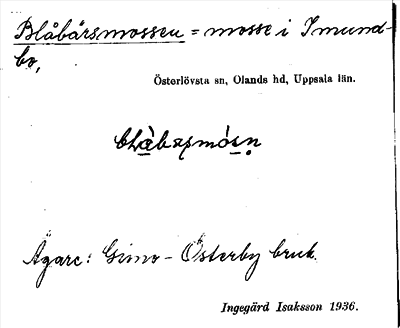 Blåbärsmossen = mosse i Imund-
bo,
Österlövsta sn, Olands hd, Uppsala län.
Ägare: Gimo-Österby bruk.
Ingegärd Isaksson 1936.